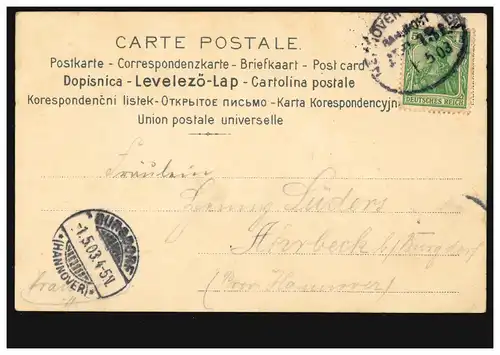 CARTE POSTALE.
Postkarte - Correspondenzkarte - Briefkaart - Post card
Dopisnica - Levelező-Lap - Cartolina postale
Korespondenční listek - Открытое письмо - Karta Korespondencyjn
Union postale universelle
HANNOVER
5 03
DEUTSCHES REICH
Fräulein
Lüders
b/Burgdorf
(Prov. Hannover)
BURGDORF
-1.5.03.4-5V.
*(HANNOVER)*